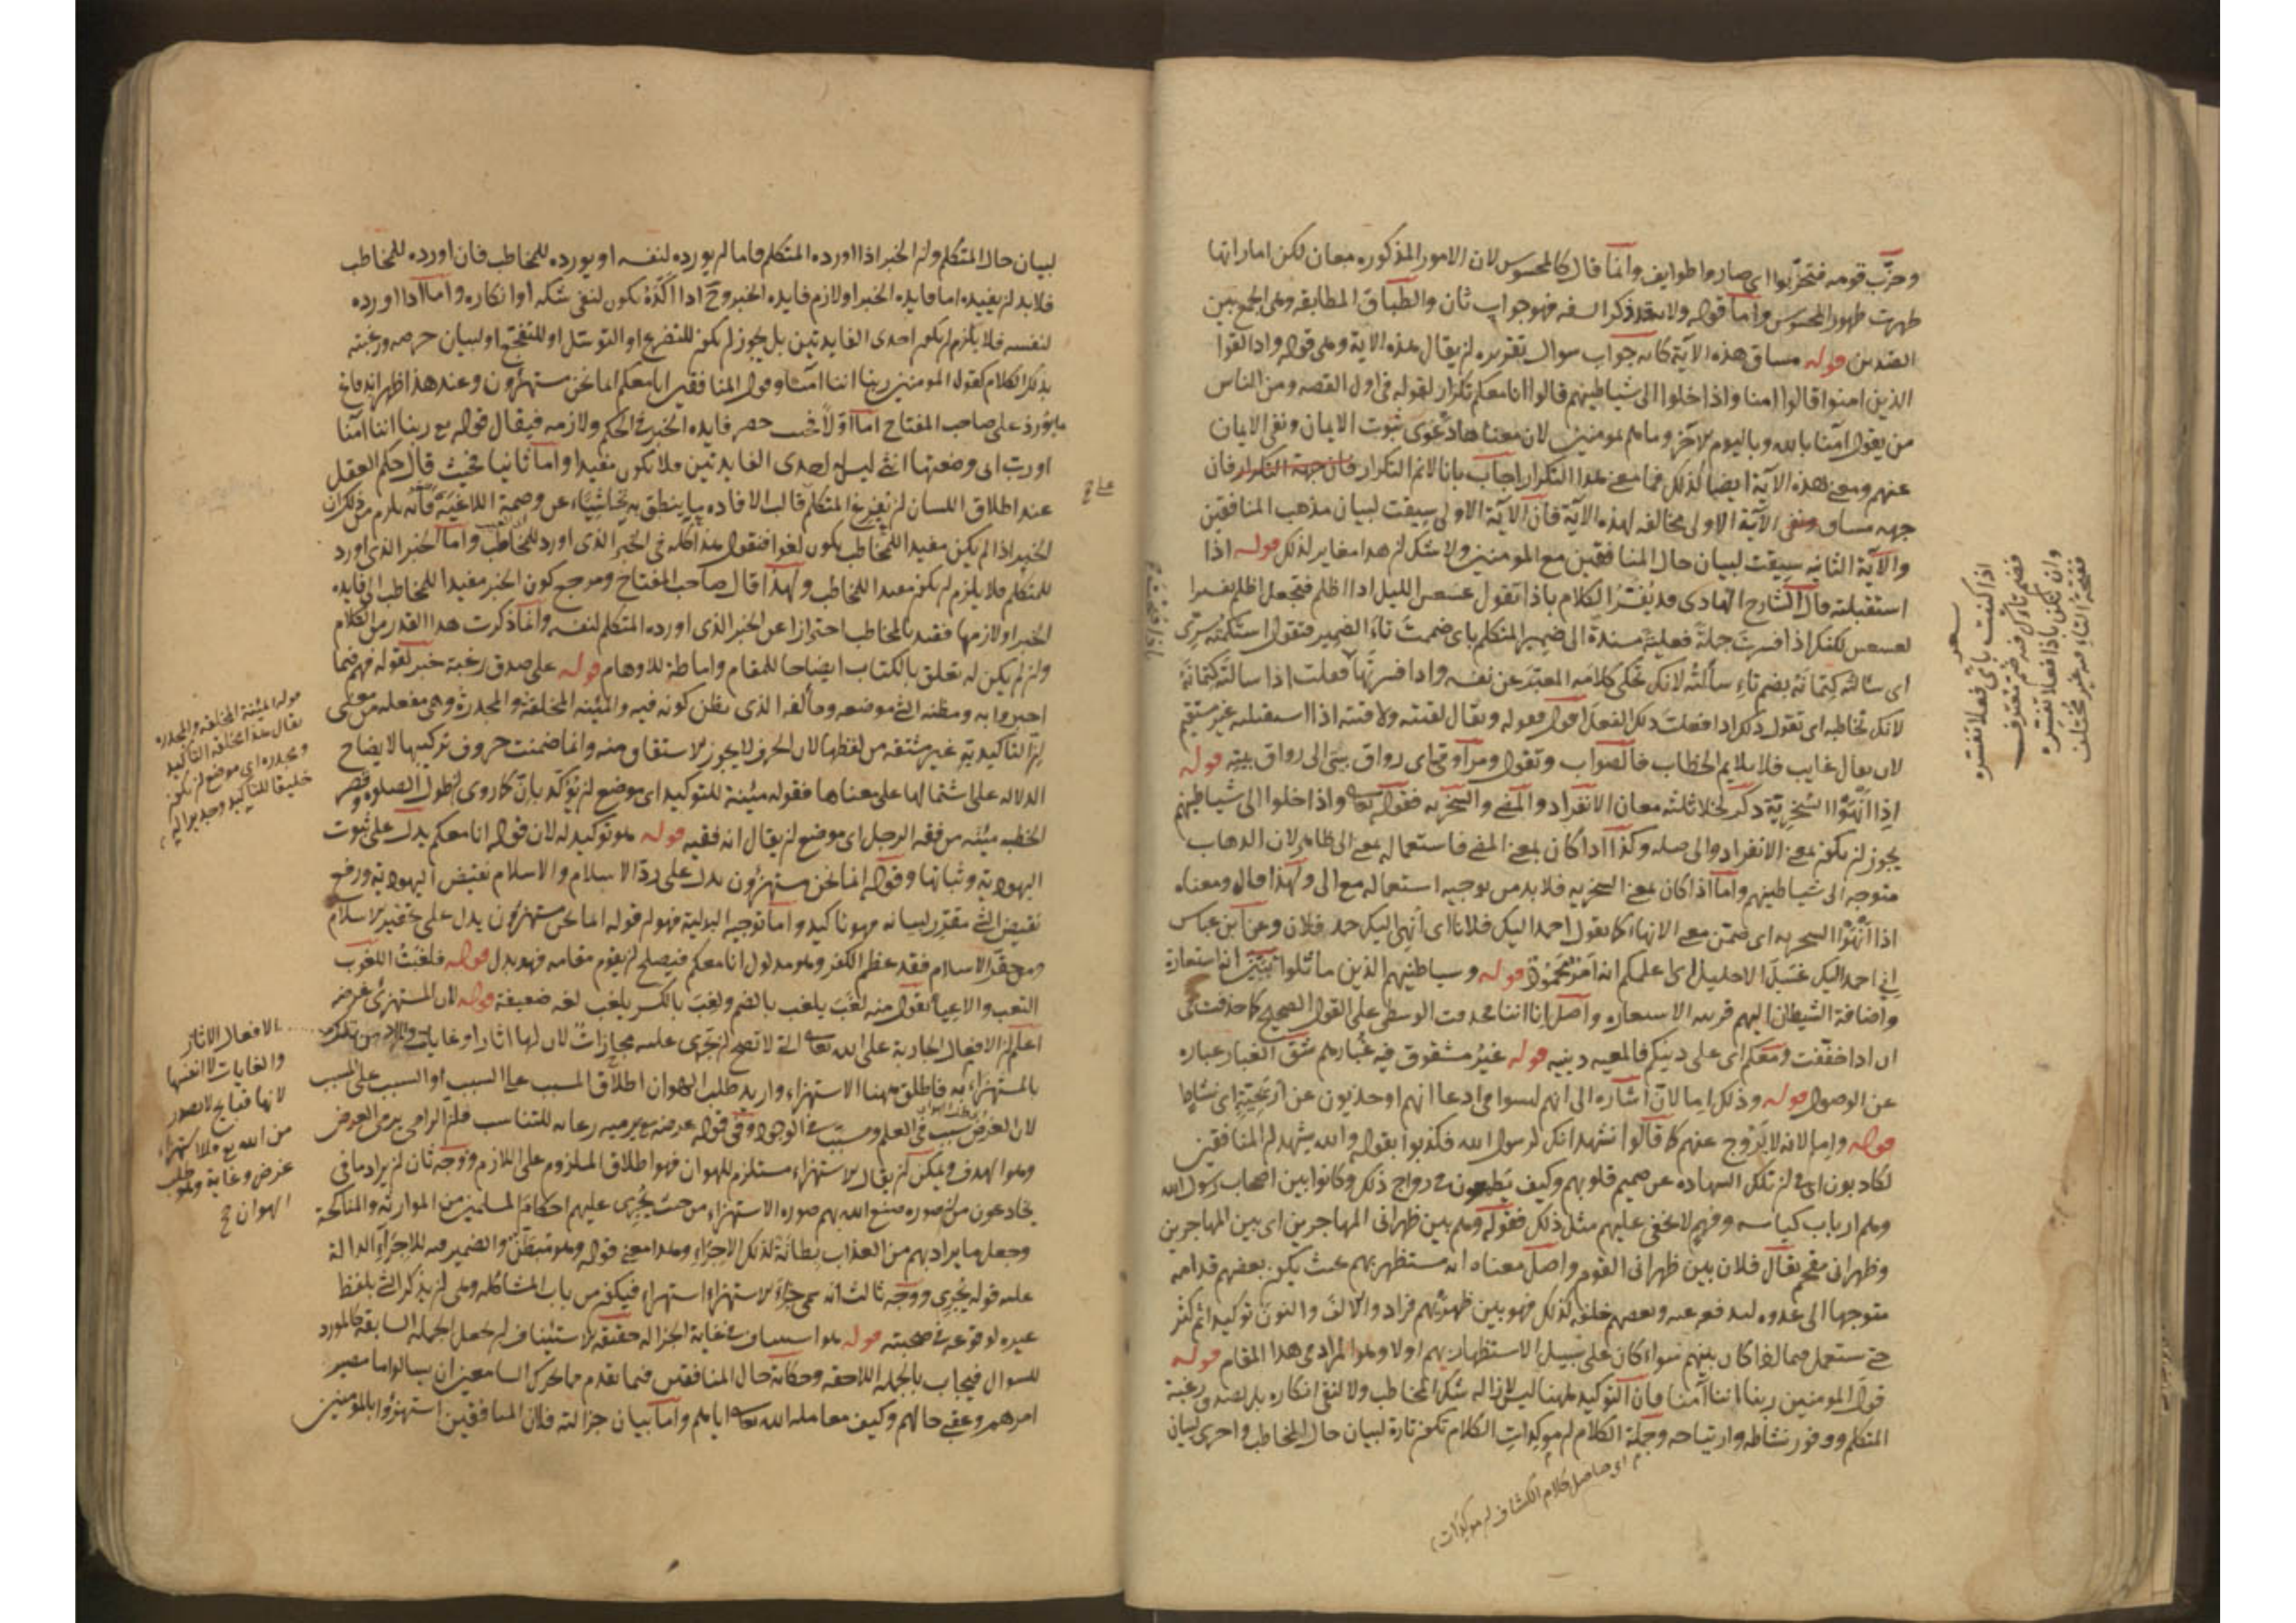 وحزّب قومه فتحزّبوا اى صاروا طوايف وانما قال كالمحسوس لان الامور المذكوره معان لكن اماراتها
ظهرت ظهور المحسوس واما قوله ولانه قد ذكر السفه فهو جواب ثان والطباق المطابقه وهى الجمع بين
الضدين قوله مساق هذه الآية كانه جواب سوال تقريره لن يقال هذه الاية وهى قوله واذا لقوا
الذين امنوا قالوا امنا واذا خلوا الى شياطينهم قالوا انا معكم تكرار لقوله فى اول القصه ومن الناس
من يقول آمنا بالله وباليوم الاخر وما هم بمومنين لان معناها دعوى ثبوت الايمان ونفى الايمان
عنهم ومعنى هذه الآية ايضا كذلك فما معنى هذا التكرار اجاب بانا لانم التكرار فان جهة التكرار فان
جهه مساق الآية الاولى مخالفه لهذه الآية فان الآية الاولى سيقت لبيان مذهب المنافقين
والآية الثانيه سيقت لبيان حال المنافقين مع المومنين ولا شك لن هذا مغاير لذلك قوله اذا
استقبلته قال الشارح الهادى قد يُفَسَّرُ الكلام باذا تقول عسعس الليل اذا اظلم فتجعل اظلم تفسيرا
لعسعس لكنك اذا فسرت جملة فعلية مسندة الى ضمير المتكلم باى ضممت تاء الضمير فتقول استكتمته سرّى
اى سالته كتمانه بضم تاء سألته لانك تحكى كلامه المعتبر عن نفسه واذا فسرتها فعلت اذا سالته كتمانه
لانك تخاطبه اى تقول ذلك اذا فعلت ذلك الفعل اقول فقوله ويقال لقيته ولاقيته اذا استقبلته غير مستقيم
لان يقال غايب فلا يلايم الخطاب فالصواب وتقول ومرّ اوقى اى رواق بيتى الى رواق بيته قوله
اذا انهوا السخرية ذكر لخلا ثلثه معان الانفراد والمضى والسخريه فقوله تعالى واذا خلوا الى شياطينهم
يجوز لن يكون بمعنى الانفراد والى صله وكذا اذا كان بمعنى المضى فاستعماله بمعنى الى ظاهر لان الذهاب
متوجه الى شياطينهم واما اذا كان بمعنى السخريه فلا بد من توجيه استعماله مع الى ولهذا قال ومعناه
اذا انهوا السخريه اى ضمّن معنى الانهاء كما يقول احمد اليك فلانا اى انهى اليك حمد فلان وعن ابن عباس
انى احمد اليك غسل الاحليل اى اعلمكم انه امر محمود قوله وشياطينهم الذين ماثلوا يبيّن انه استعارة
واضافة الشيطان اليهم قرينه الاستعاره واصل انا اننا فحذفت الوسطى على القول الصحيح كما حذفت فى
ان اذا خففت ومعكم اى على دينكم فالمعيه دينيه قوله غير مشقوق فيه غبارهم شق الغبار عباره
عن الوصول قوله وذلك اما لان اشاره الى انهم ليسوا فى ادعا انهم اوحديون عن اريحيّة اى نشاط
قوله واما لانه لا يروج عنهم كما قالوا نشهد انك لرسول الله فكذبوا بقوله والله يشهد لن المنافقين
لكاذبون اى فى لن تلك الشهاده عن صميم قلوبهم وكيف يطمعون فى رواج ذلك وكانوا بين اصحاب رسول الله
وهم ارباب كياسه وفهم لا يخفى عليهم مثل ذلك فقوله وهم بين ظهرانى المهاجرين اى بين المهاجرين
وظهرانى مقحم يقال فلان بين ظهرانى القوم واصل معناه انه مستظهر بهم بحيث يكون بعضهم قدامه
متوجها الى عدوه ليدفع عنه وبعضهم خلفه لذلك فهو بين ظهريهم فزاد والالف والنون توكيدا ثم كثر
حتى ستعمل فيما اذا كان بينهم سواء كان على سبيل الاستظهار بهم اولا وهو المراد فى هذا المقام قوله
قول المومنين ربنا اننا آمنا فان التوكيد ههنا ليس لازاله شك المخاطب ولا لنفى انكاره بل لصدق رغبة
المتكلم ووفور نشاطه وارتياحه وجملة الكلام لن موكدات الكلام تكون تارة لبيان حال المخاطب واخرى لبيان
اى حاصل كلام الكشاف لن موكدات
اذا كنت باى فعلا تفسره
فضم تاءك فيه ضم معترف
وان تكن باذا فعلا تفسره
ففتحة التاء فيه غير مختلف
لبيان حال المتكلم ولن الخبر اذا اورده المتكلم فاما لن يورده لنفسه او يورده للمخاطب فان اورده للمخاطب
فلا بد لن يفيده اما فايده الخبر او لازم فايده الخبر وح اذا اكّده يكون لنفى شكه او انكاره واما اذا اورده
لنفسه فلا يلزم لن يكون احدى الفايدتين بل يجوز لن يكون للتضرع او التوسّل او للتفجع او لبيان حرصه ورغبته
بذلك الكلام كقول المومنين ربنا اننا آمنا وقول المنافقين انا معكم انما نحن مستهزؤن وعند هذا ظهر اندفاع
ما يورد على صاحب المفتاح اما اولا فحيث حصر فايده الخبر فى الحكم ولازمه فيقال قوله مع ربنا اننا آمنا
او رب انى وضعتها انثى ليس له احدى الفايدتين فلا يكون مفيدا واما ثانيا فحيث قال حكم العقل
عند اطلاق اللسان لن يفرغ المتكلم قالب الافاده ما ينطق به تحاشيا عن وصمة اللاغية فانه يلزم من ذلك ان
الخبر اذا لم يكن مفيدا للمخاطب يكون لغوا فنقول هذا كله فى الخبر الذى اورد للمخاطب واما الخبر الذى اورد
للمتكلم فلا يلزم لن يكون مفيدا للمخاطب ولهذا قال صاحب المفتاح ومرجع كون الخبر مفيدا للمخاطب الى فايده
الخبر او لازمها فقيد بالمخاطب احترازا عن الخبر الذى اورده المتكلم لنفسه وانما ذكرت هذا القدر من الكلام
ولن لم يكن له تعلق بالكتاب ايضاحا للمقام واماطة للاوهام قوله على صدق رغبة خبر لقوله فهم فيما
اخبروا به ومظنه الشئ موضعه ومألفه الذى يظن كونه فيه والمئينه المخلقة والمجدرة وهى مفعله من معنى
انّ التاكيديّة غير مشتقه من لفظها لان الحرف لا يجوز الاستقاق منه وانما ضمنت حروف تركيبها لايضاح
الدلاله على اشتمالها على معناها فقوله مئينة للتوكيد اى موضع لن يؤكّد بانّ كما روى لن طول الصلوه وقصر
الخطبه مئينه من فقه الرجل اى موضع لن يقال انه فقيه قوله هو توكيد له لان قوله انا معكم يدل على ثبوت
اليهوديه وثباتها وقوله انما نحن مستهزؤن يدل على ردّ الاسلام والاسلام نقيض اليهودية ورفع
نقيض الشئ مقرّر لبيانه فهو تاكيد واما توجيه البدلية فهو لن قوله انما نحن مستهزؤن يدل على تحقير الاسلام
ومن حقّر الاسلام فقد عظم الكفر وهو مدلول انا معكم فيصلح لن يقوم مقامه فهو بدل قوله فلغبت اللغوب
التعب والاعياء يقول منه لغب يلغب بالضم ولغب بالكسر يلغب لغه ضعيفة قوله لان المستهزئ غرضه
اعلم لن الافعال الجارية على الله تعالى التى لا تصح لن تجرى عليه مجازات لان لها اثارا وغايات
بالمستهزاء به فاطلق ههنا الاستهزاء واريد طلب الهوان اطلاق المسبب على السبب او السبب على المسبب
لان الغرض سبب فى العلم ومسبّب فى الوجود وفى قوله غرضه يرميه رعايه للتناسب فلن الرامى يرمى الغرض
وهو الهدف ويمكن لن يقال الاستهزاء مستلزم للهوان فهو اطلاق الملزوم على اللازم ووجه ثان لن يراد ما فى
يخادعون من لن صوره صنع الله بهم صوره الاستهزاء من حيث يُجرى عليهم احكام المسلمين من الموارثه والمناكحة
وجعل ما يراد بهم من العذاب بطانة لذلك الاجراء وهذا معنى قوله وهو مُبطّن والضمير فيه للاجراء الدالة
عليه قوله يُجرى ووجه ثالث انه سمى جزاء الاستهزاء استهزاء فيكون من باب المشاكله وهى لن يذكر الشئ بلفظ
غيره لوقوعه فى صحبته قوله هو استيناف فى غاية الجزاله حقيقه الاستيناف لن يجعل الجمله السابقه كالمورد
للسوال فيجاب بالجمله اللاحقه وحكاية حال المنافقين فيما تقدم مما يحرك السامعين ان يسالوا ما مصير
امرهم وعقبى حالهم وكيف معامله الله تعالى اياهم واما بيان جزالته فلان المنافقين استهزؤا بالمومنين
قوله المئينة المخلقه والمجدره
يقال هذا مخلقه التاكيد
ومجدره اى موضع لن يكون
خليقا للتاكيد وجديرا له
الافعال الاثار
والغايات لا انفسها
لانها قبايح لا تصدر
من الله مع ولا استهزاء
غرض وغاية وهو طلب
الهوان صح